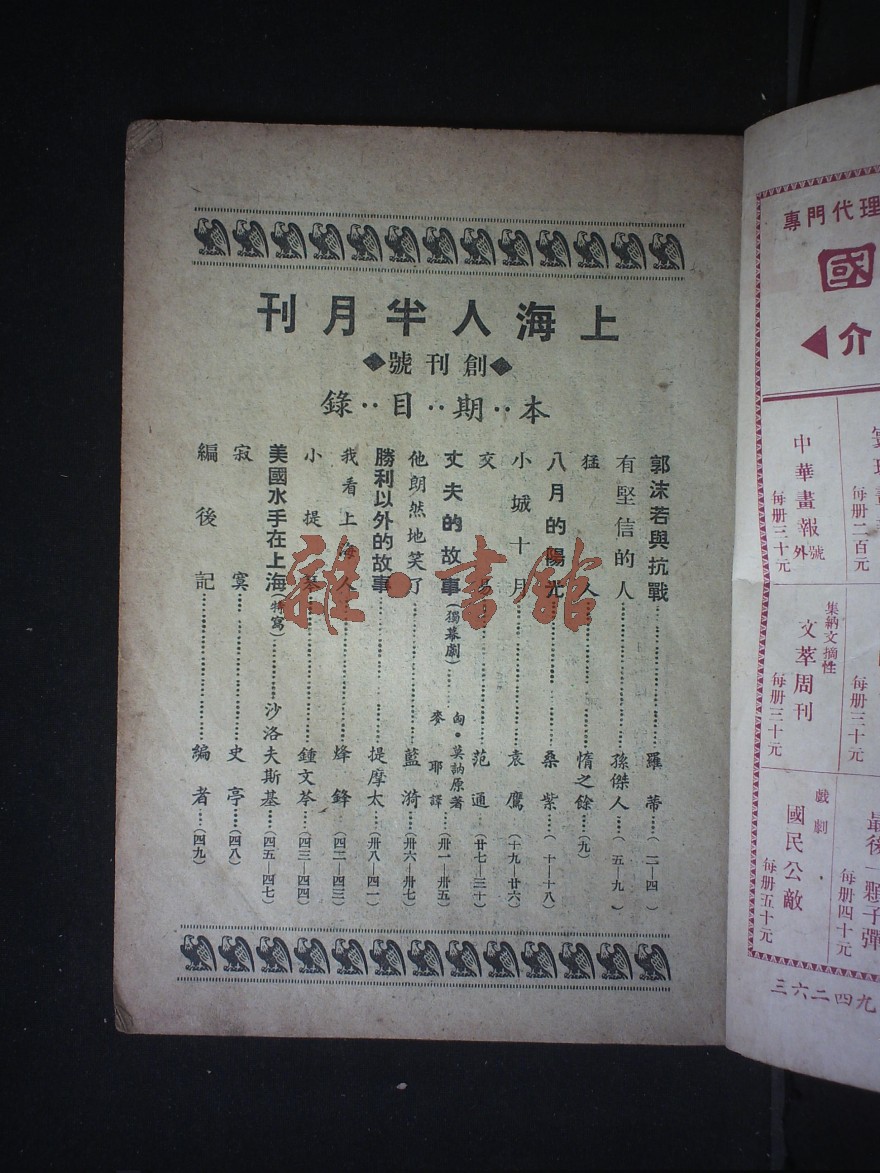 上海人半月刊
◆創刊號◆
本‥期‥目‥錄
郭沫若與抗戰……羅蒂……(二—四)
有堅信的人……孫傑人……(五—九)
猛人……惰之餘……(九)
八月的陽光……桑紫……(十—十八)
小城十月……袁鷹……(十九—廿六)
交易……范通……(廿七—三十)
丈夫的故事(獨幕劇)……匈・莫訥原著 麥耶譯……(卅一—卅五)
他朗然地笑了……藍漪……(卅六—卅七)
勝利以外的故事……提摩太……(卅八—四一)
我看上海人……烽鋒……(四二—四三)
小提琴……鍾文苓……(四三—四四)
美國水手在上海(特寫)……沙洛夫斯基……(四五—四七)
寂寞……史亭……(四八)
編後記……編者……(四九)
雜・書館
專門代理
國
介◀
每册二百元
中華畫報號外
每册三十元
每册三十元
集納文摘性
文萃周刊
每册三十元
最後一顆子彈
每册四十元
戲劇
國民公敵
每册五十元
三六二四九